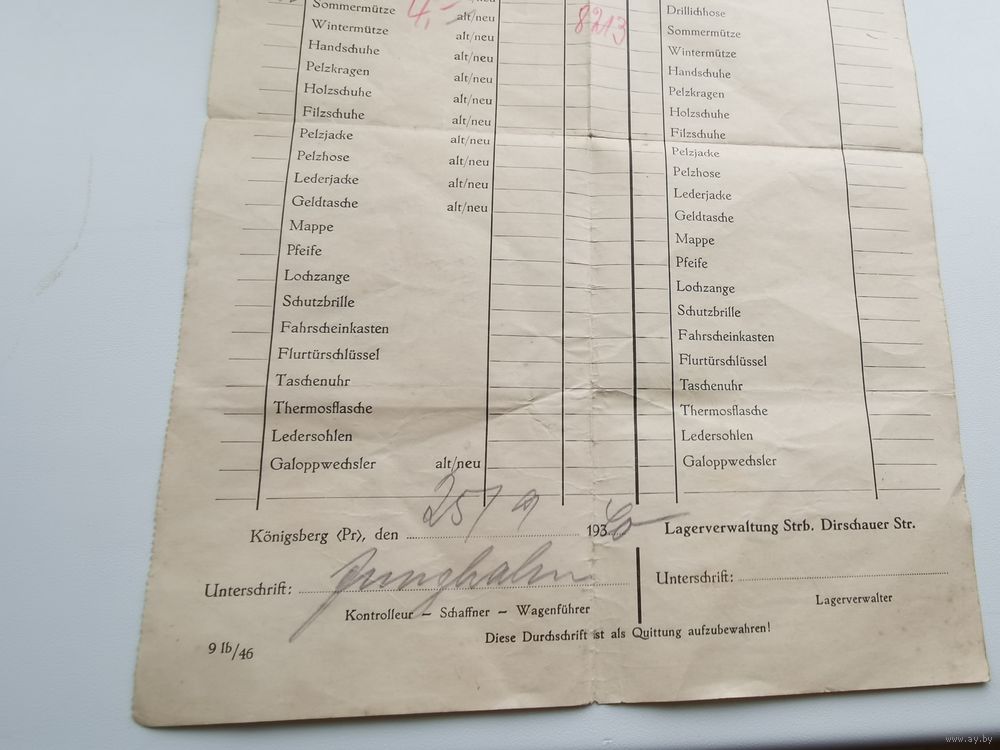 Sommermütze 4,- alt/neu 8213
Wintermütze alt/neu
Handschuhe alt/neu
Pelzkragen alt/neu
Holzschuhe alt/neu
Filzschuhe alt/neu
Pelzjacke alt/neu
Pelzhose alt/neu
Lederjacke alt/neu
Geldtasche alt/neu
Mappe
Pfeife
Lochzange
Schutzbrille
Fahrscheinkasten
Flurtürschlüssel
Taschenuhr
Thermosflasche
Ledersohlen
Galoppwechsler alt/neu
Drillichhose
Sommermütze
Wintermütze
Handschuhe
Pelzkragen
Holzschuhe
Filzschuhe
Pelzjacke
Pelzhose
Lederjacke
Geldtasche
Mappe
Pfeife
Lochzange
Schutzbrille
Fahrscheinkasten
Flurtürschlüssel
Taschenuhr
Thermosflasche
Ledersohlen
Galoppwechsler
Königsberg (Pr), den 25/9 1940
Unterschrift: Junghahn
Kontrolleur – Schaffner – Wagenführer
Lagerverwaltung Strb. Dirschauer Str.
Unterschrift:
Lagerverwalter
Diese Durchschrift ist als Quittung aufzubewahren!
9 Ib/46
www.ay.by